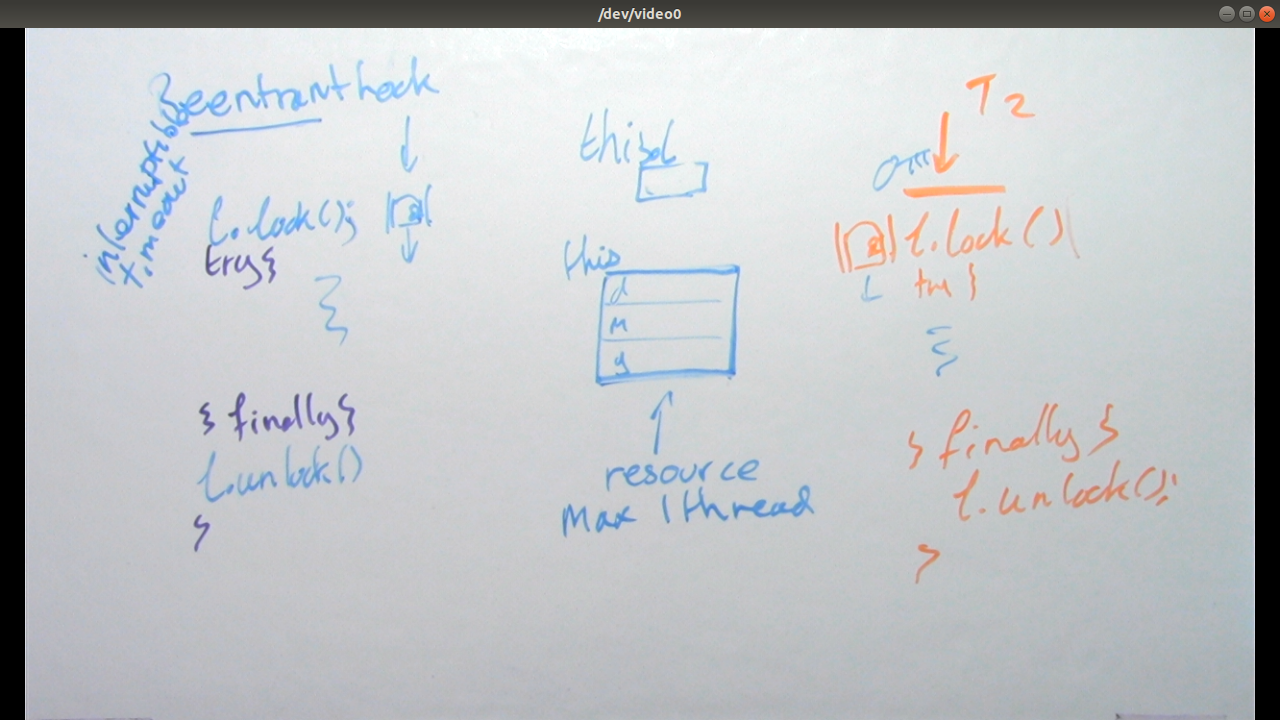 /dev/video0
ReentrantLock
interruptible
timeout
l.lock();
try{
} finally {
l.unlock()
}
this
this
d
m
y
resource
Max 1 thread
T2
l.lock()
} finally {
l.unlock();
}